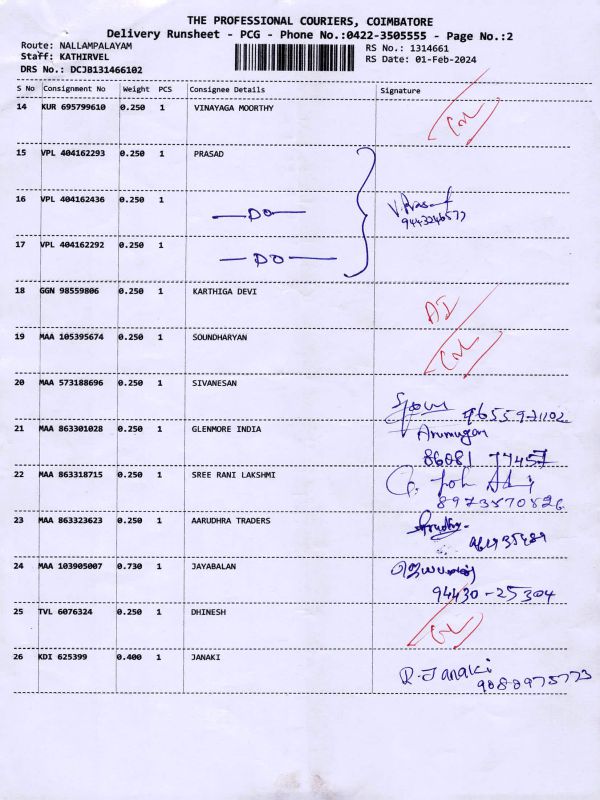 THE PROFESSIONAL COURIERS, COIMBATORE
Delivery Runsheet - PCG - Phone No.:0422-3505555 - Page No.:2
Route: NALLAMPALAYAM
Staff: KATHIRVEL
DRS No.: DCJB131466102
RS No.: 1314661
RS Date: 01-Feb-2024
S No Consignment No Weight PCS Consignee Details Signature
14 KUR 695799610 0.250 1 VINAYAGA MOORTHY
15 VPL 404162293 0.250 1 PRASAD
16 VPL 404162436 0.250 1 DO V. Prasad
9443246577
17 VPL 404162292 0.250 1 DO
18 GGN 98559806 0.250 1 KARTHIGA DEVI
19 MAA 105395674 0.250 1 SOUNDHARYAN
20 MAA 573188696 0.250 1 SIVANESAN
21 MAA 863301028 0.250 1 GLENMORE INDIA Arumugam
86081 77457
22 MAA 863318715 0.250 1 SREE RANI LAKSHMI
8973570526
23 MAA 863323623 0.250 1 AARUDHRA TRADERS
24 MAA 103905007 0.730 1 JAYABALAN
94430-25304
25 TVL 6076324 0.250 1 DHINESH
26 KDI 625399 0.400 1 JANAKI R. Janaki
9080975773